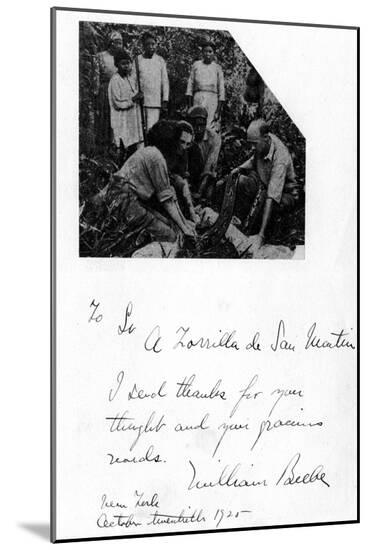 To Sr
A Zorrilla de San Martin
I send thanks for your
thought and your gracious
words.
William Beebe
New York
October twentieth 1925